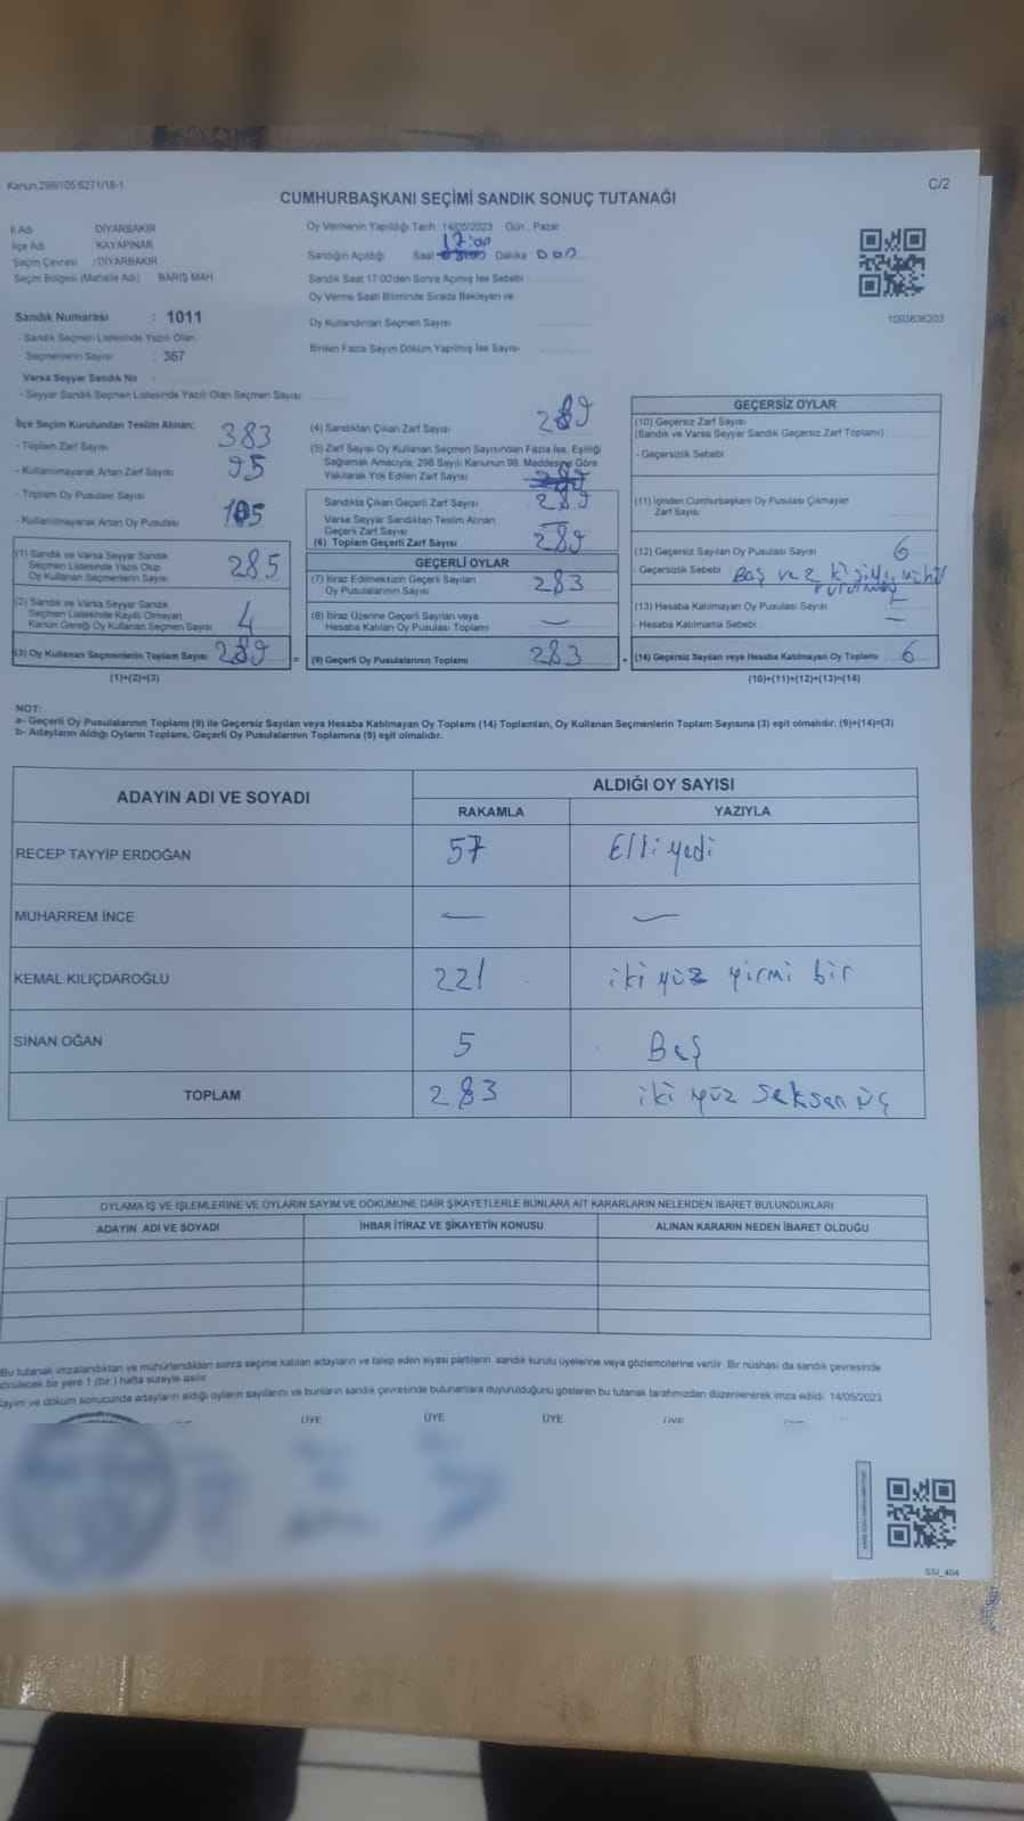 Kanun 298/105 6271/18-1
C/2
CUMHURBAŞKANI SEÇİMİ SANDIK SONUÇ TUTANAĞI
İl Adı DİYARBAKIR
İlçe Adı KAYAPINAR
Seçim Çevresi : DİYARBAKIR
Seçim Bölgesi (Mahalle Adı) BARIŞ MAH.
Sandık Numarası : 1011
- Sandık Seçmen Listesinde Yazılı Olan
Seçmenlerin Sayısı : 367
Varsa Seyyar Sandık No
- Seyyar Sandık Seçmen Listesinde Yazılı Olan Seçmen Sayısı
Oy Vermenin Yapıldığı Tarih 14/05/2023 Gün : Pazar
17:00
Sandığın Açıldığı Saat Dakika
Sandık Saat 17:00'den Sonra Açılmış İse Sebebi
Oy Verme Saati Bitiminde Sırada Bekleyen ve
Oy Kullandırılan Seçmen Sayısı
Birden Fazla Sayım Döküm Yapılmış İse Sayısı
1093636203
İlçe Seçim Kurulundan Teslim Alınan;
- Toplam Zarf Sayısı 383
- Kullanılmayarak Artan Zarf Sayısı 95
- Toplam Oy Pusulası Sayısı
- Kullanılmayarak Artan Oy Pusulası
(1) Sandık ve Varsa Seyyar Sandık
Seçmen Listesinde Yazılı Olup
Oy Kullanan Seçmenlerin Sayısı 285
(2) Sandık ve Varsa Seyyar Sandık
Seçmen Listesinde Kayıtlı Olmayan
Kanun Gereği Oy Kullanan Seçmen Sayısı 4
(3) Oy Kullanan Seçmenlerin Toplam Sayısı 289
(1)+(2)=(3)
(4) Sandıktan Çıkan Zarf Sayısı 289
(5) Zarf Sayısı Oy Kullanan Seçmen Sayısından Fazla İse, Eşitliği
Sağlamak Amacıyla, 298 Sayılı Kanunun 98. Maddesine Göre
Yakılarak Yok Edilen Zarf Sayısı
Sandıkta Çıkan Geçerli Zarf Sayısı 289
Varsa Seyyar Sandıktan Teslim Alınan
Geçerli Zarf Sayısı
(6) Toplam Geçerli Zarf Sayısı 289
GEÇERLİ OYLAR
(7) İtiraz Edilmeksizin Geçerli Sayılan
Oy Pusulalarının Sayısı 283
(8) İtiraz Üzerine Geçerli Sayılan veya
Hesaba Katılan Oy Pusulası Toplamı —
= (9) Geçerli Oy Pusulalarının Toplamı 283
GEÇERSİZ OYLAR
(10) Geçersiz Zarf Sayısı
(Sandık ve Varsa Seyyar Sandık Geçersiz Zarf Toplamı)
- Geçersizlik Sebebi
(11) İçinden Cumhurbaşkanı Oy Pusulası Çıkmayan
Zarf Sayısı
(12) Geçersiz Sayılan Oy Pusulası Sayısı 6
- Geçersizlik Sebebi Boş ve 2
(13) Hesaba Katılmayan Oy Pusulası Sayısı
- Hesaba Katılmama Sebebi —
(14) Geçersiz Sayılan veya Hesaba Katılmayan Oy Toplamı 6
(10)+(11)+(12)+(13)=(14)
NOT:
a- Geçerli Oy Pusulalarının Toplamı (9) ile Geçersiz Sayılan veya Hesaba Katılmayan Oy Toplamı (14) Toplamları, Oy Kullanan Seçmenlerin Toplam Sayısına (3) eşit olmalıdır. (9)+(14)=(3)
b- Adayların Aldığı Oyların Toplamı, Geçerli Oy Pusulalarının Toplamına (9) eşit olmalıdır.
ADAYIN ADI VE SOYADI
ALDIĞI OY SAYISI
RAKAMLA YAZIYLA
RECEP TAYYİP ERDOĞAN 57 Elli yedi
MUHARREM İNCE — —
KEMAL KILIÇDAROĞLU 221 iki yüz yirmi bir
SİNAN OĞAN 5 Beş
TOPLAM 283 iki yüz seksan üç
OYLAMA İŞ VE İŞLEMLERİNE VE OYLARIN SAYIM VE DÖKÜMÜNE DAİR ŞİKAYETLERLE BUNLARA AİT KARARLARIN NELERDEN İBARET BULUNDUKLARI
ADAYIN ADI VE SOYADI İHBAR İTİRAZ VE ŞİKAYETİN KONUSU ALINAN KARARIN NEDEN İBARET OLDUĞU
Bu tutanak imzalandıktan ve mühürlendikten sonra seçime katılan adayların ve talep eden siyasi partilerin sandık kurulu üyelerine veya gözlemcilerine verilir. Bir nüshası da sandık çevresinde
görülecek bir yere 1 (bir) hafta süreyle asılır.
Sayım ve döküm sonucunda adayların aldığı oyların sayılarını ve bunların sandık çevresinde bulunanlara duyurulduğunu gösteren bu tutanak tarafımızdan düzenlenerek imza edildi. 14/05/2023
ÜYE ÜYE ÜYE ÜYE